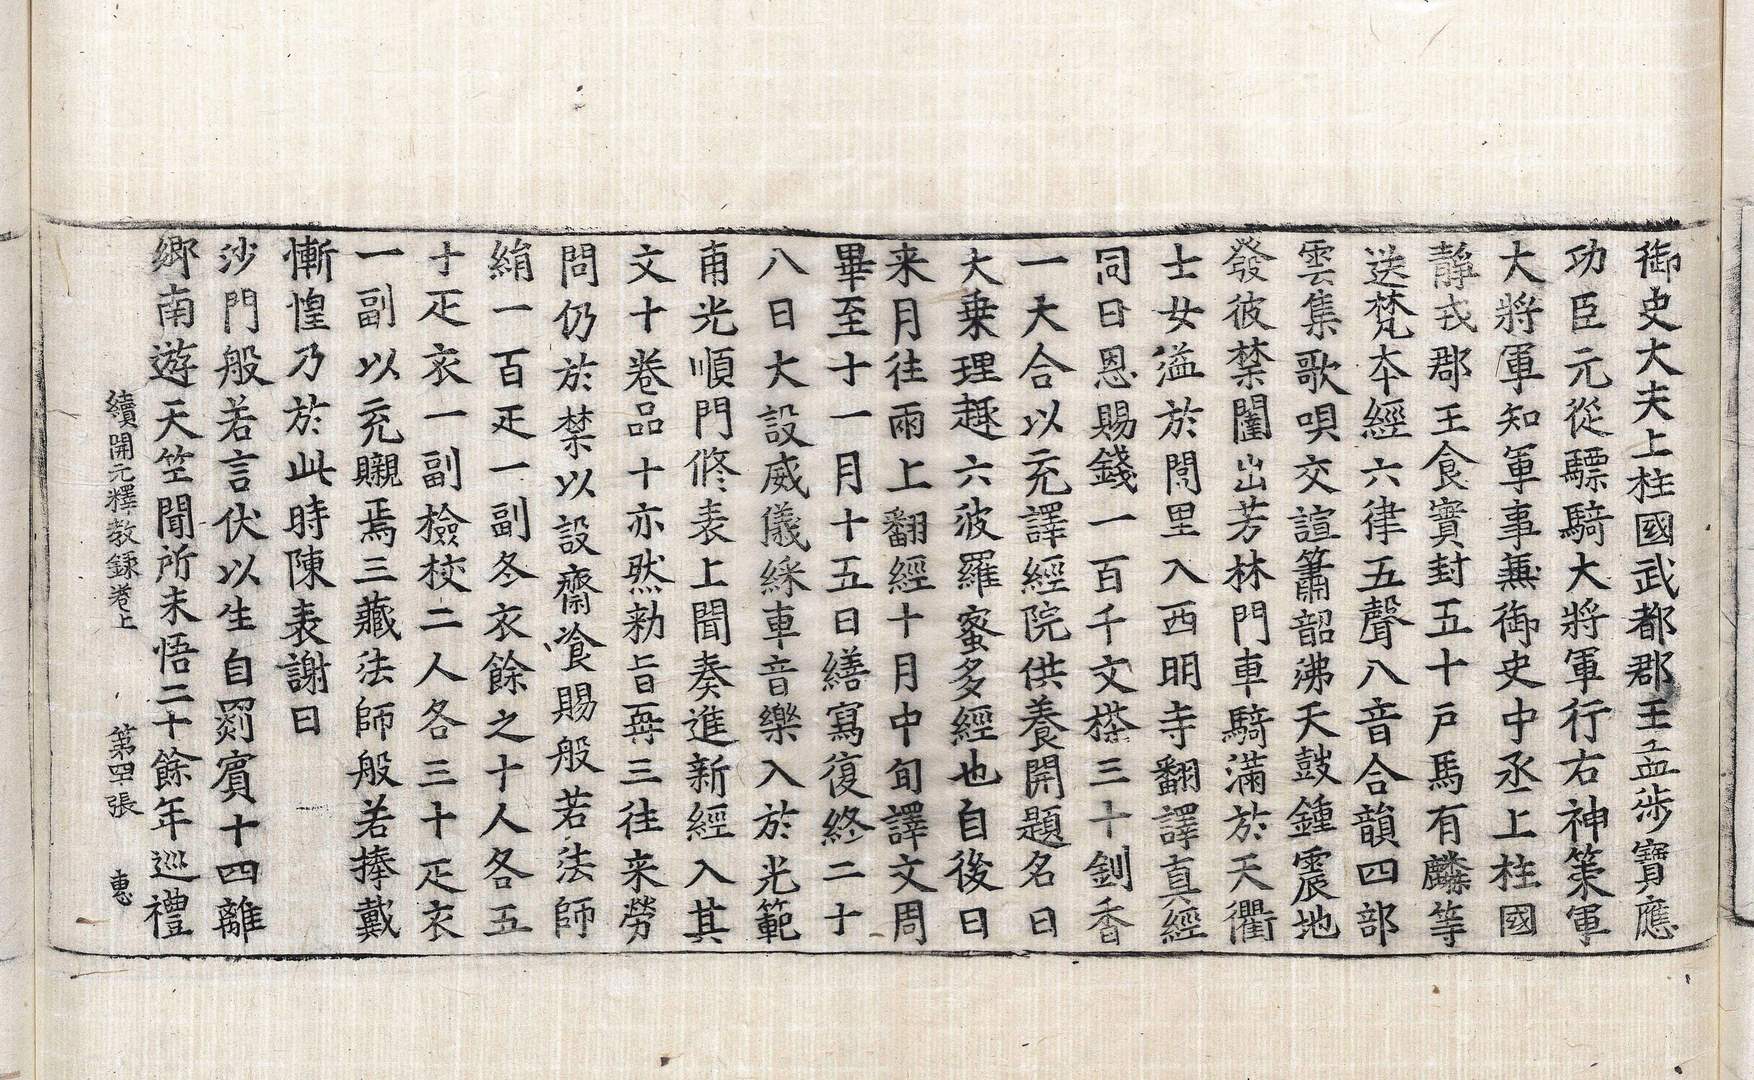 御史大夫上柱國武都郡王孟涉寶應
功臣元從驃騎大將軍行右神策軍
大將軍知軍事兼御史中丞上柱國
靜戎郡王食實封五十戶馬有麟等
送梵夲經六律五聲八音合韻四部
雲集歌唄交諠簫韶沸天鼓鍾震地
發彼禁闈出芳林門車騎滿於天衢
士女溢於閭里入西明寺翻譯真經
同日恩賜錢一百千文榙三十釧香
一大合以充譯經院供養開題名曰
大乘理趣六波羅蜜多經也自後日
来月往兩上翻經十月中旬譯文周
畢至十一月十五日繕寫復終二十
八日大設威儀綵車音樂入於光範
甫光順門修表上聞奏進新經入其
文十卷品十亦然勑旨再三往来勞
問仍於禁以設齋飡賜般若法師
絹一百疋一副冬衣餘之十人各五
十疋衣一副檢校二人各三十疋衣
一副以充嚫焉三藏法師般若捧戴
慚惶乃於此時陳表謝曰
沙門般若言伏以生自罽賓十四離
鄉南遊天竺聞所未悟二十餘年巡禮
續開元釋教錄卷上 第四張 惠